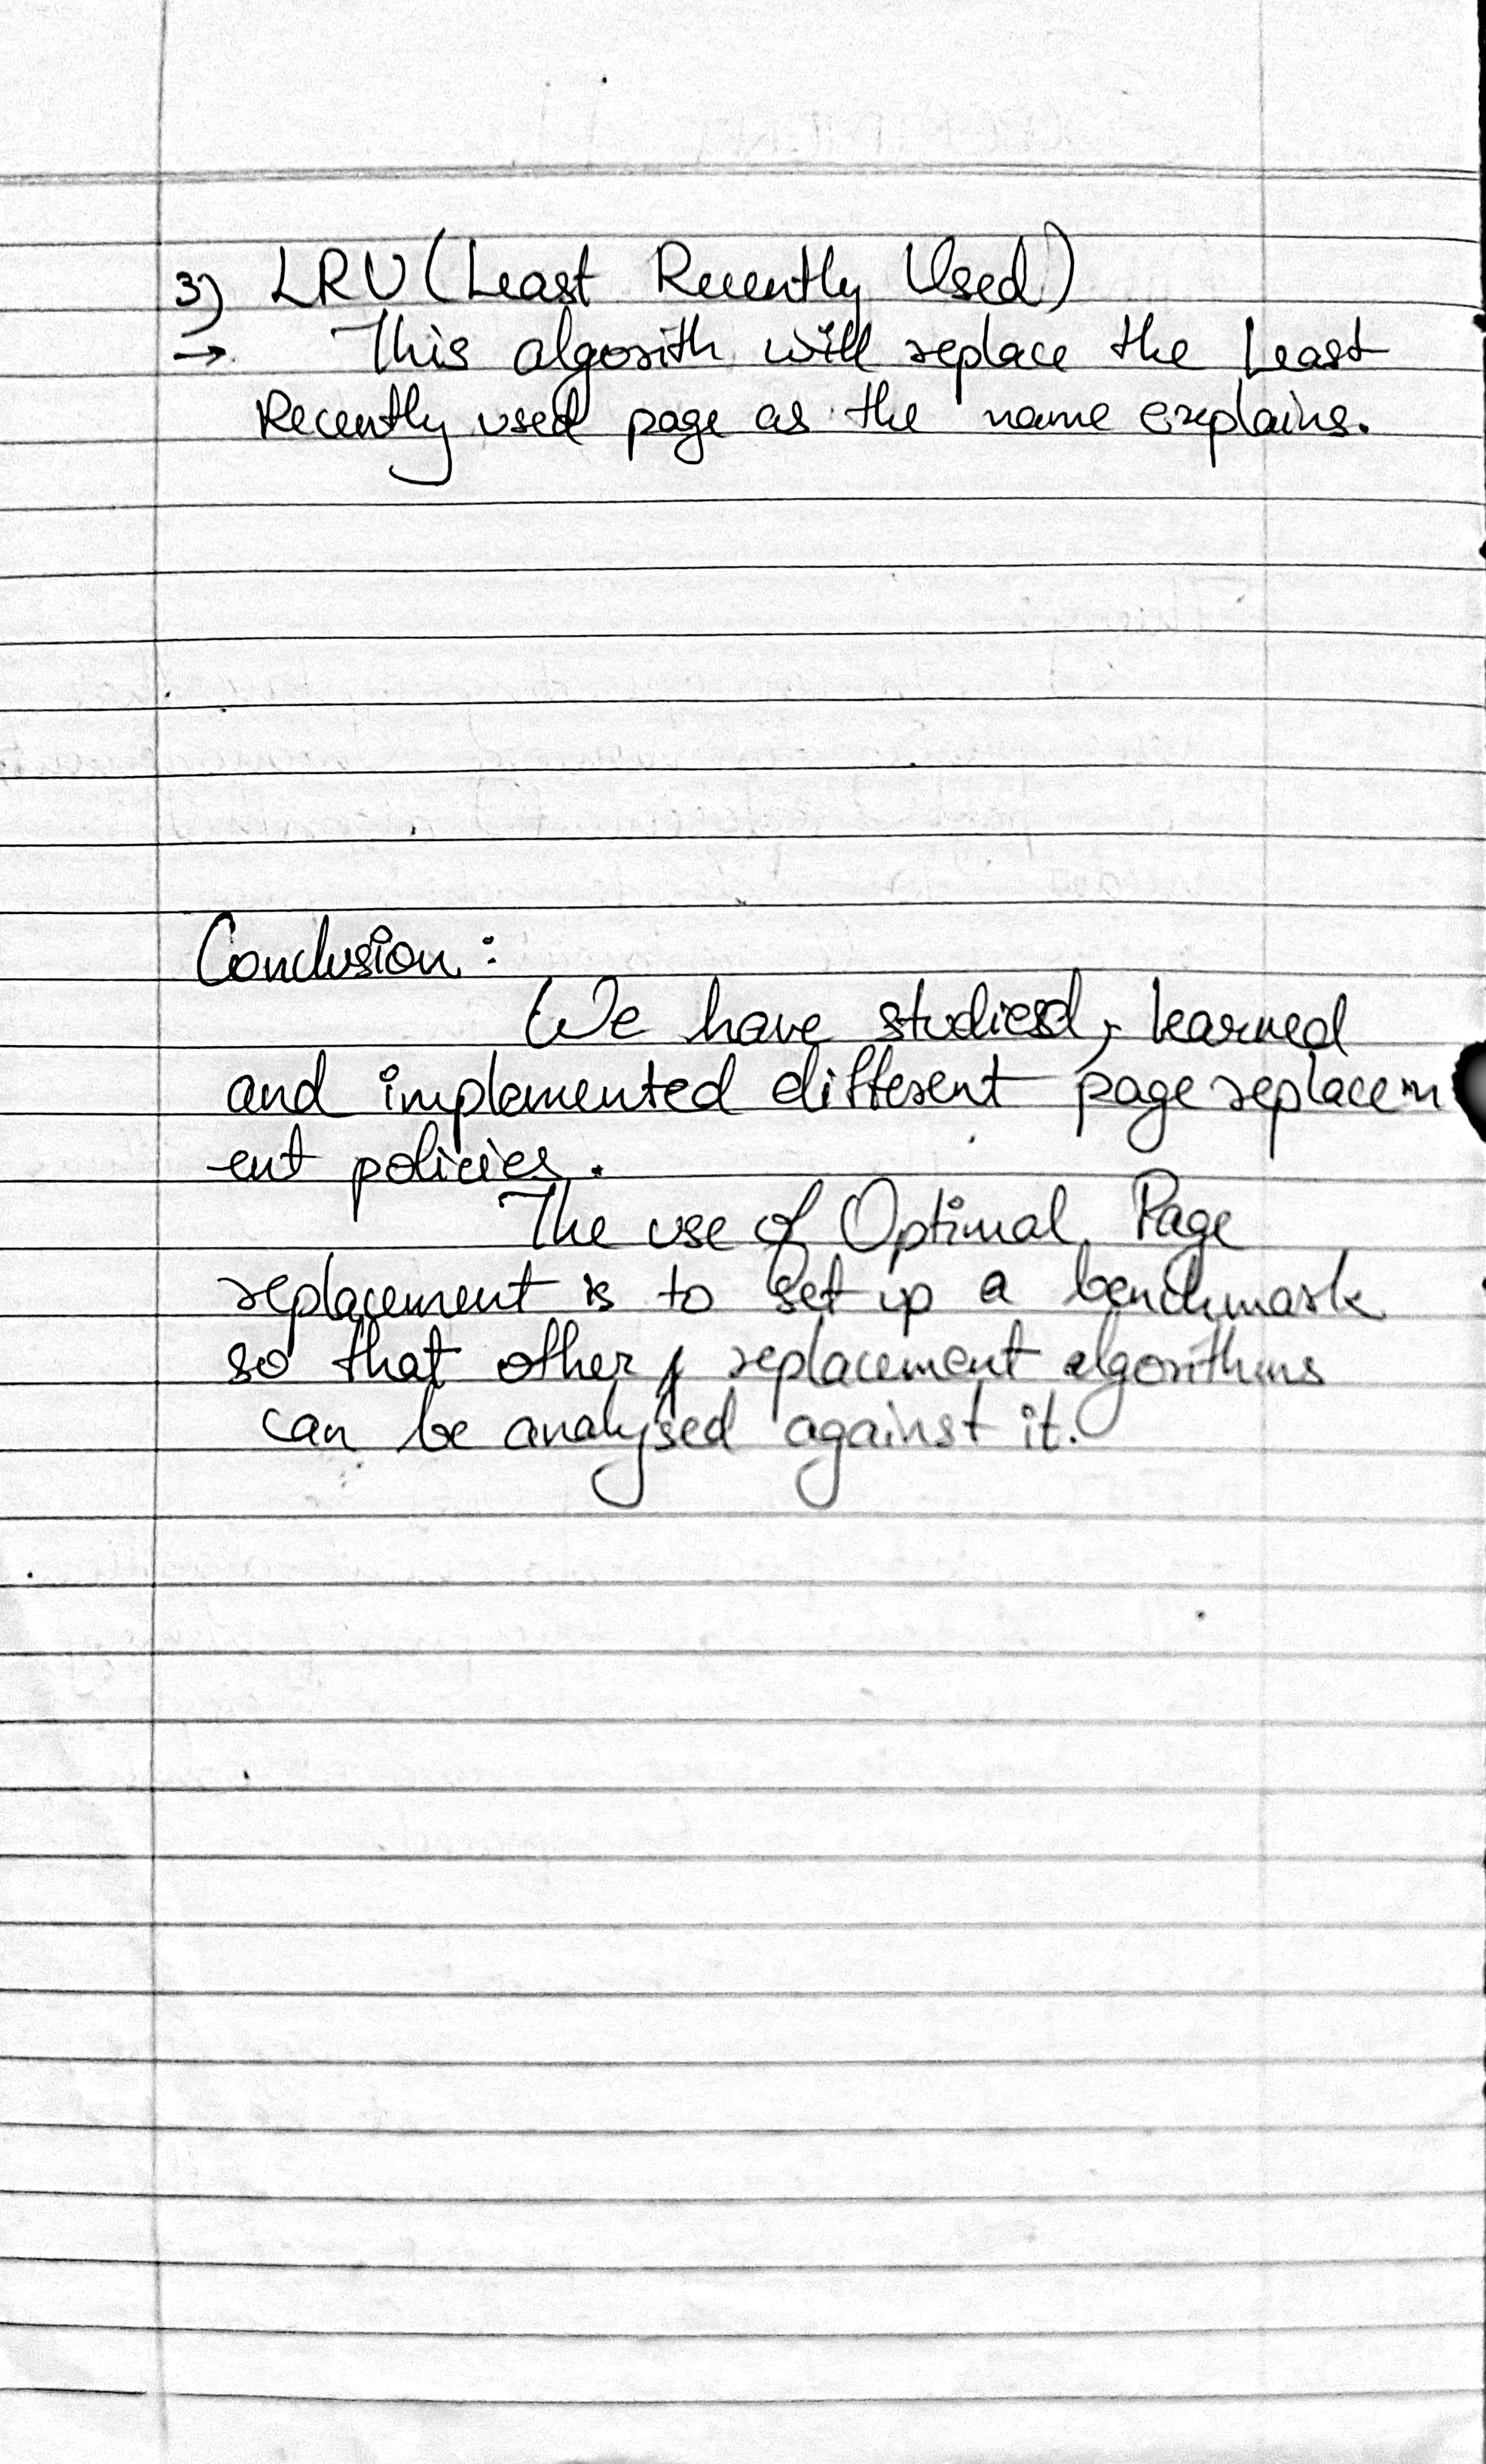 3) LRU (Least Recently Used)
→ This algorith will replace the Least
Recently used page as the name explains.
Conclusion :
We have studied, learned
and implemented different page replacem
-ent policies.
The use of Optimal Page
replacement is to set up a benchmark
so that other replacement algorithms
can be analysed against it.